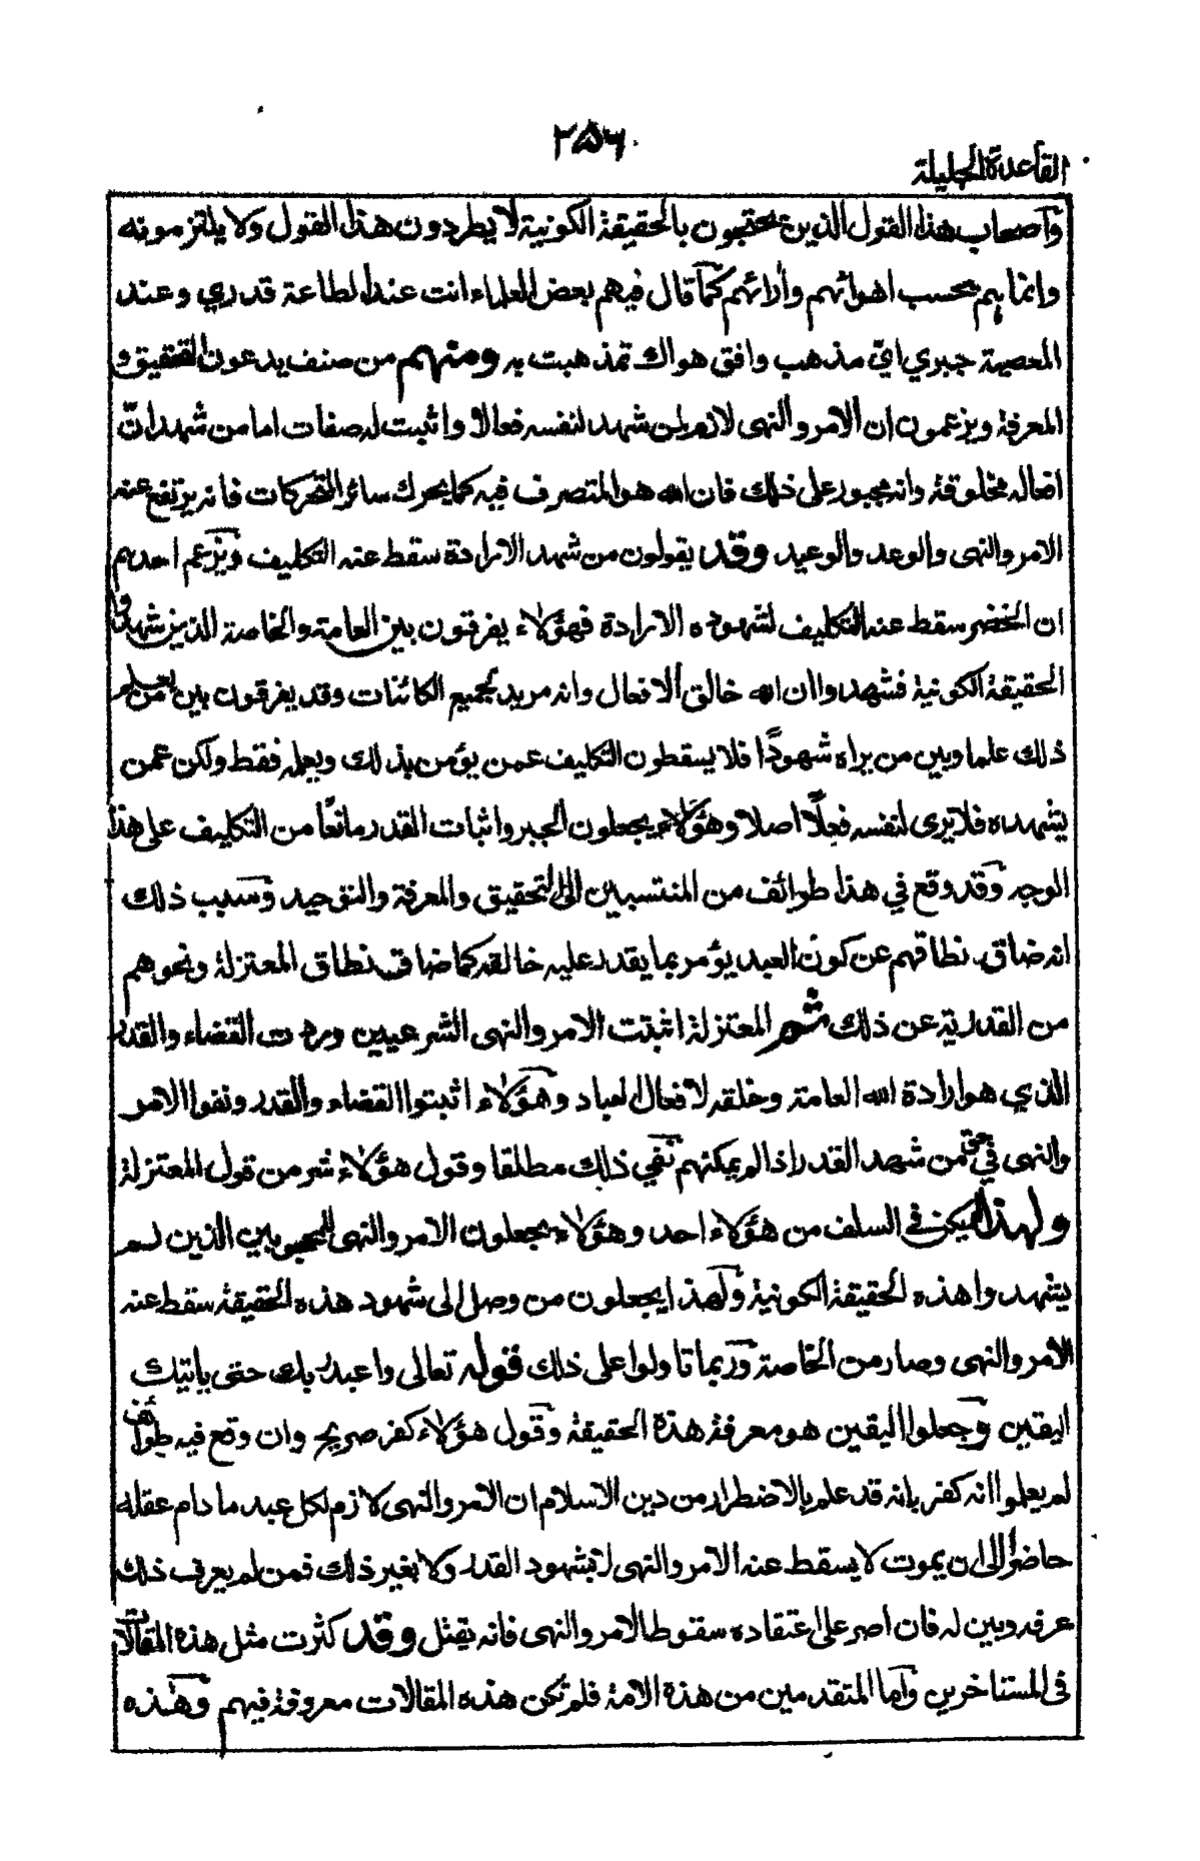 ٢٥٦
القاعدة الجليلة
وأصحاب هذا القول الذين يحتجون بالحقيقة الكونية لا يطردون هذا القول ولا يلتزمونه
وانما هم بحسب اهوائهم وارائهم كما قال فيهم بعض العلماء انت عند الطاعة قدري وعند
المعصية جبري اي مذهب وافق هواك تمذهبت به ومنهم من صنف يدعون التحقيق و
المعرفة ويزعمون ان الامر والنهى لازم لمن شهد لنفسه فعالا واثبت له صفات اما من شهد انّ
افعاله مخلوقة وانه مجبور على ذلك فان الله هو المتصرف فيه كما يحرك سائر المتحركات فانه يرتفع عنه
الامر والنهى والوعد والوعيد وقد يقولون من شهد الارادة سقط عنه التكليف ويزعم احدهم
ان الخضر سقط عنه التكليف لشهوده الارادة فهؤلاء يفرقون بين العامة والخاصة الذين شهدوا
الحقيقة الكونية فشهدوا ان الله خالق الافعال وانه مريد لجميع الكائنات وقد يفرقون بين من يعلم
ذلك علما وبين من يراه شهودًا فلا يسقطون التكليف عمن يؤمن بذلك ويعلمه فقط ولكن عمن
يشهده فلا يرى لنفسه فعلًا اصلا وهؤلاء يجعلون الجبر واثبات القدر مانعًا من التكليف على هذا
الوجه وقد وقع في هذا طوائف من المنتسبين الى التحقيق والمعرفة والتوحيد وسبب ذلك
انه ضاق نطاقهم عن كون العبد يؤمر بما يقدر عليه خالقه كما ضاق نطاق المعتزلة ونحوهم
من القدرية عن ذلك ثم المعتزلة اثبتت الامر والنهى الشرعيين وردت القضاء والقدر
الذي هو ارادة الله العامة وخلقه لافعال العباد وهؤلاء اثبتوا القضاء والقدر ونفوا الامر
والنهى في حق من شهد القدر اذ لم يمكنهم نفي ذلك مطلقا وقول هؤلاء شر من قول المعتزلة
ولهذا لم يكن في السلف من هؤلاء احد وهؤلاء يجعلون الامر والنهى للمحجوبين الذين لم
يشهدوا هذه الحقيقة الكونية ولهذا يجعلون من وصل الى شهود هذه الحقيقة سقط عنه
الامر والنهى وصار من الخاصة وربما تاولوا على ذلك قوله تعالى واعبد ربك حتى ياتيك
اليقين وجعلوا اليقين هو معرفة هذه الحقيقة وقول هؤلاء كفر صريح وان وقع فيه طوائف
لم يعلموا انه كفر فانه قد علم بالاضطرار من دين الاسلام ان الامر والنهى لازم لكل عبد ما دام عقله
حاضرا الى ان يموت لا يسقط عنه الامر والنهى لا بشهود القدر ولا بغير ذلك فمن لم يعرف ذلك
عرفه وبين له فان اصر على اعتقاده سقوط الامر والنهى فانه يقتل وقد كثرت مثل هذه المقالات
في المستاخرين وأما المتقدمين من هذه الامة فلم تكن هذه المقالات معروفة فيهم وهذه